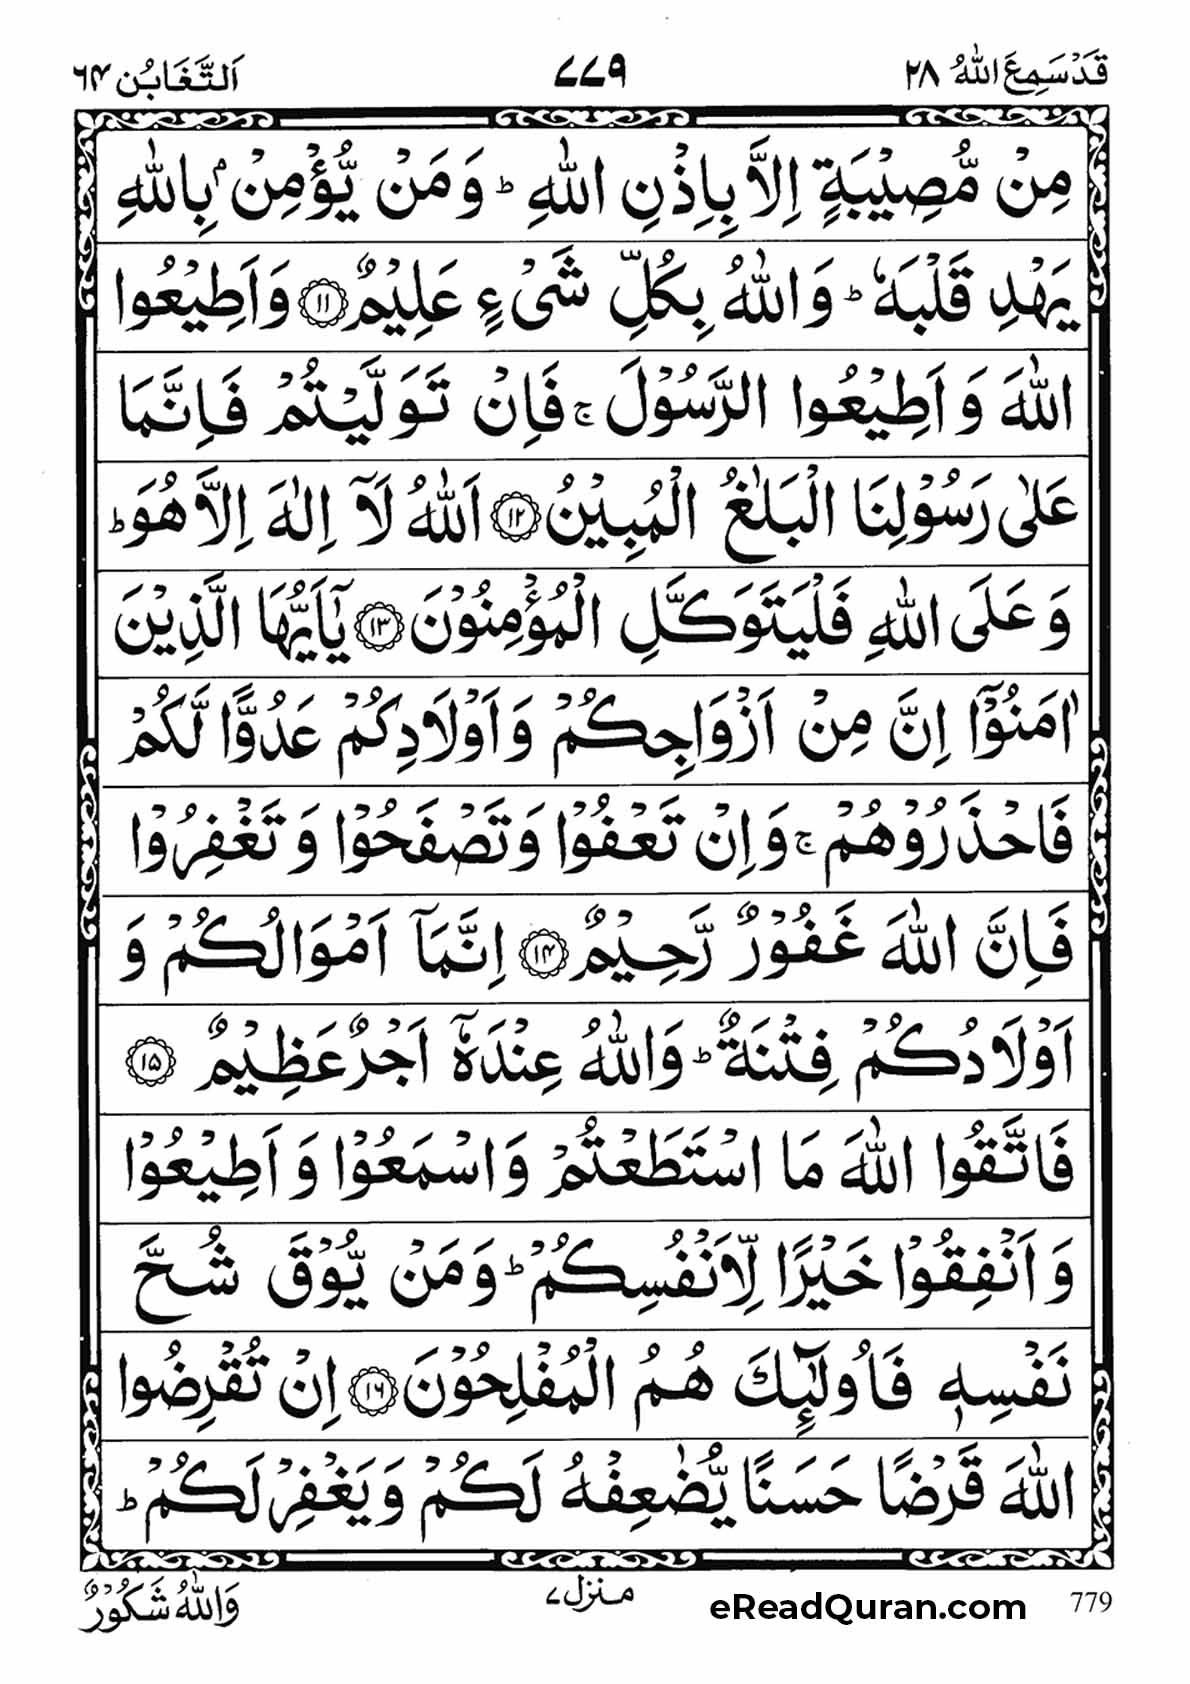 قَدْ سَمِعَ اللّٰهُ ۲۸ ۷۷۹ اَلتَّغَابُن ۶۴
مِنْ مُّصِيْبَةٍ اِلَّا بِاِذْنِ اللّٰهِ ؕ وَ مَنْ يُّؤْمِنْۢ بِاللّٰهِ
يَهْدِ قَلْبَهٗ ؕ وَ اللّٰهُ بِكُلِّ شَیْءٍ عَلِيْمٌ ۱۱ وَ اَطِيْعُوا
اللّٰهَ وَ اَطِيْعُوا الرَّسُوْلَ ۚ فَاِنْ تَوَلَّيْتُمْ فَاِنَّمَا
عَلٰى رَسُوْلِنَا الْبَلٰغُ الْمُبِيْنُ ۱۲ اَللّٰهُ لَاۤ اِلٰهَ اِلَّا هُوَ ؕ
وَ عَلَى اللّٰهِ فَلْيَتَوَكَّلِ الْمُؤْمِنُوْنَ ۱۳ يٰۤاَيُّهَا الَّذِيْنَ
اٰمَنُوْۤا اِنَّ مِنْ اَزْوَاجِكُمْ وَ اَوْلَادِكُمْ عَدُوًّا لَّكُمْ
فَاحْذَرُوْهُمْ ۚ وَ اِنْ تَعْفُوْا وَ تَصْفَحُوْا وَ تَغْفِرُوْا
فَاِنَّ اللّٰهَ غَفُوْرٌ رَّحِيْمٌ ۱۴ اِنَّمَاۤ اَمْوَالُكُمْ وَ
اَوْلَادُكُمْ فِتْنَةٌ ؕ وَ اللّٰهُ عِنْدَهٗۤ اَجْرٌ عَظِيْمٌ ۱۵
فَاتَّقُوا اللّٰهَ مَا اسْتَطَعْتُمْ وَ اسْمَعُوْا وَ اَطِيْعُوْا
وَ اَنْفِقُوْا خَيْرًا لِّاَنْفُسِكُمْ ؕ وَ مَنْ يُّوْقَ شُحَّ
نَفْسِهٖ فَاُولٰٓئِكَ هُمُ الْمُفْلِحُوْنَ ۱۶ اِنْ تُقْرِضُوا
اللّٰهَ قَرْضًا حَسَنًا يُّضٰعِفْهُ لَكُمْ وَ يَغْفِرْ لَكُمْ ؕ
وَ اللّٰهُ شَكُوْرٌ
منزل ۷
eReadQuran.com 779